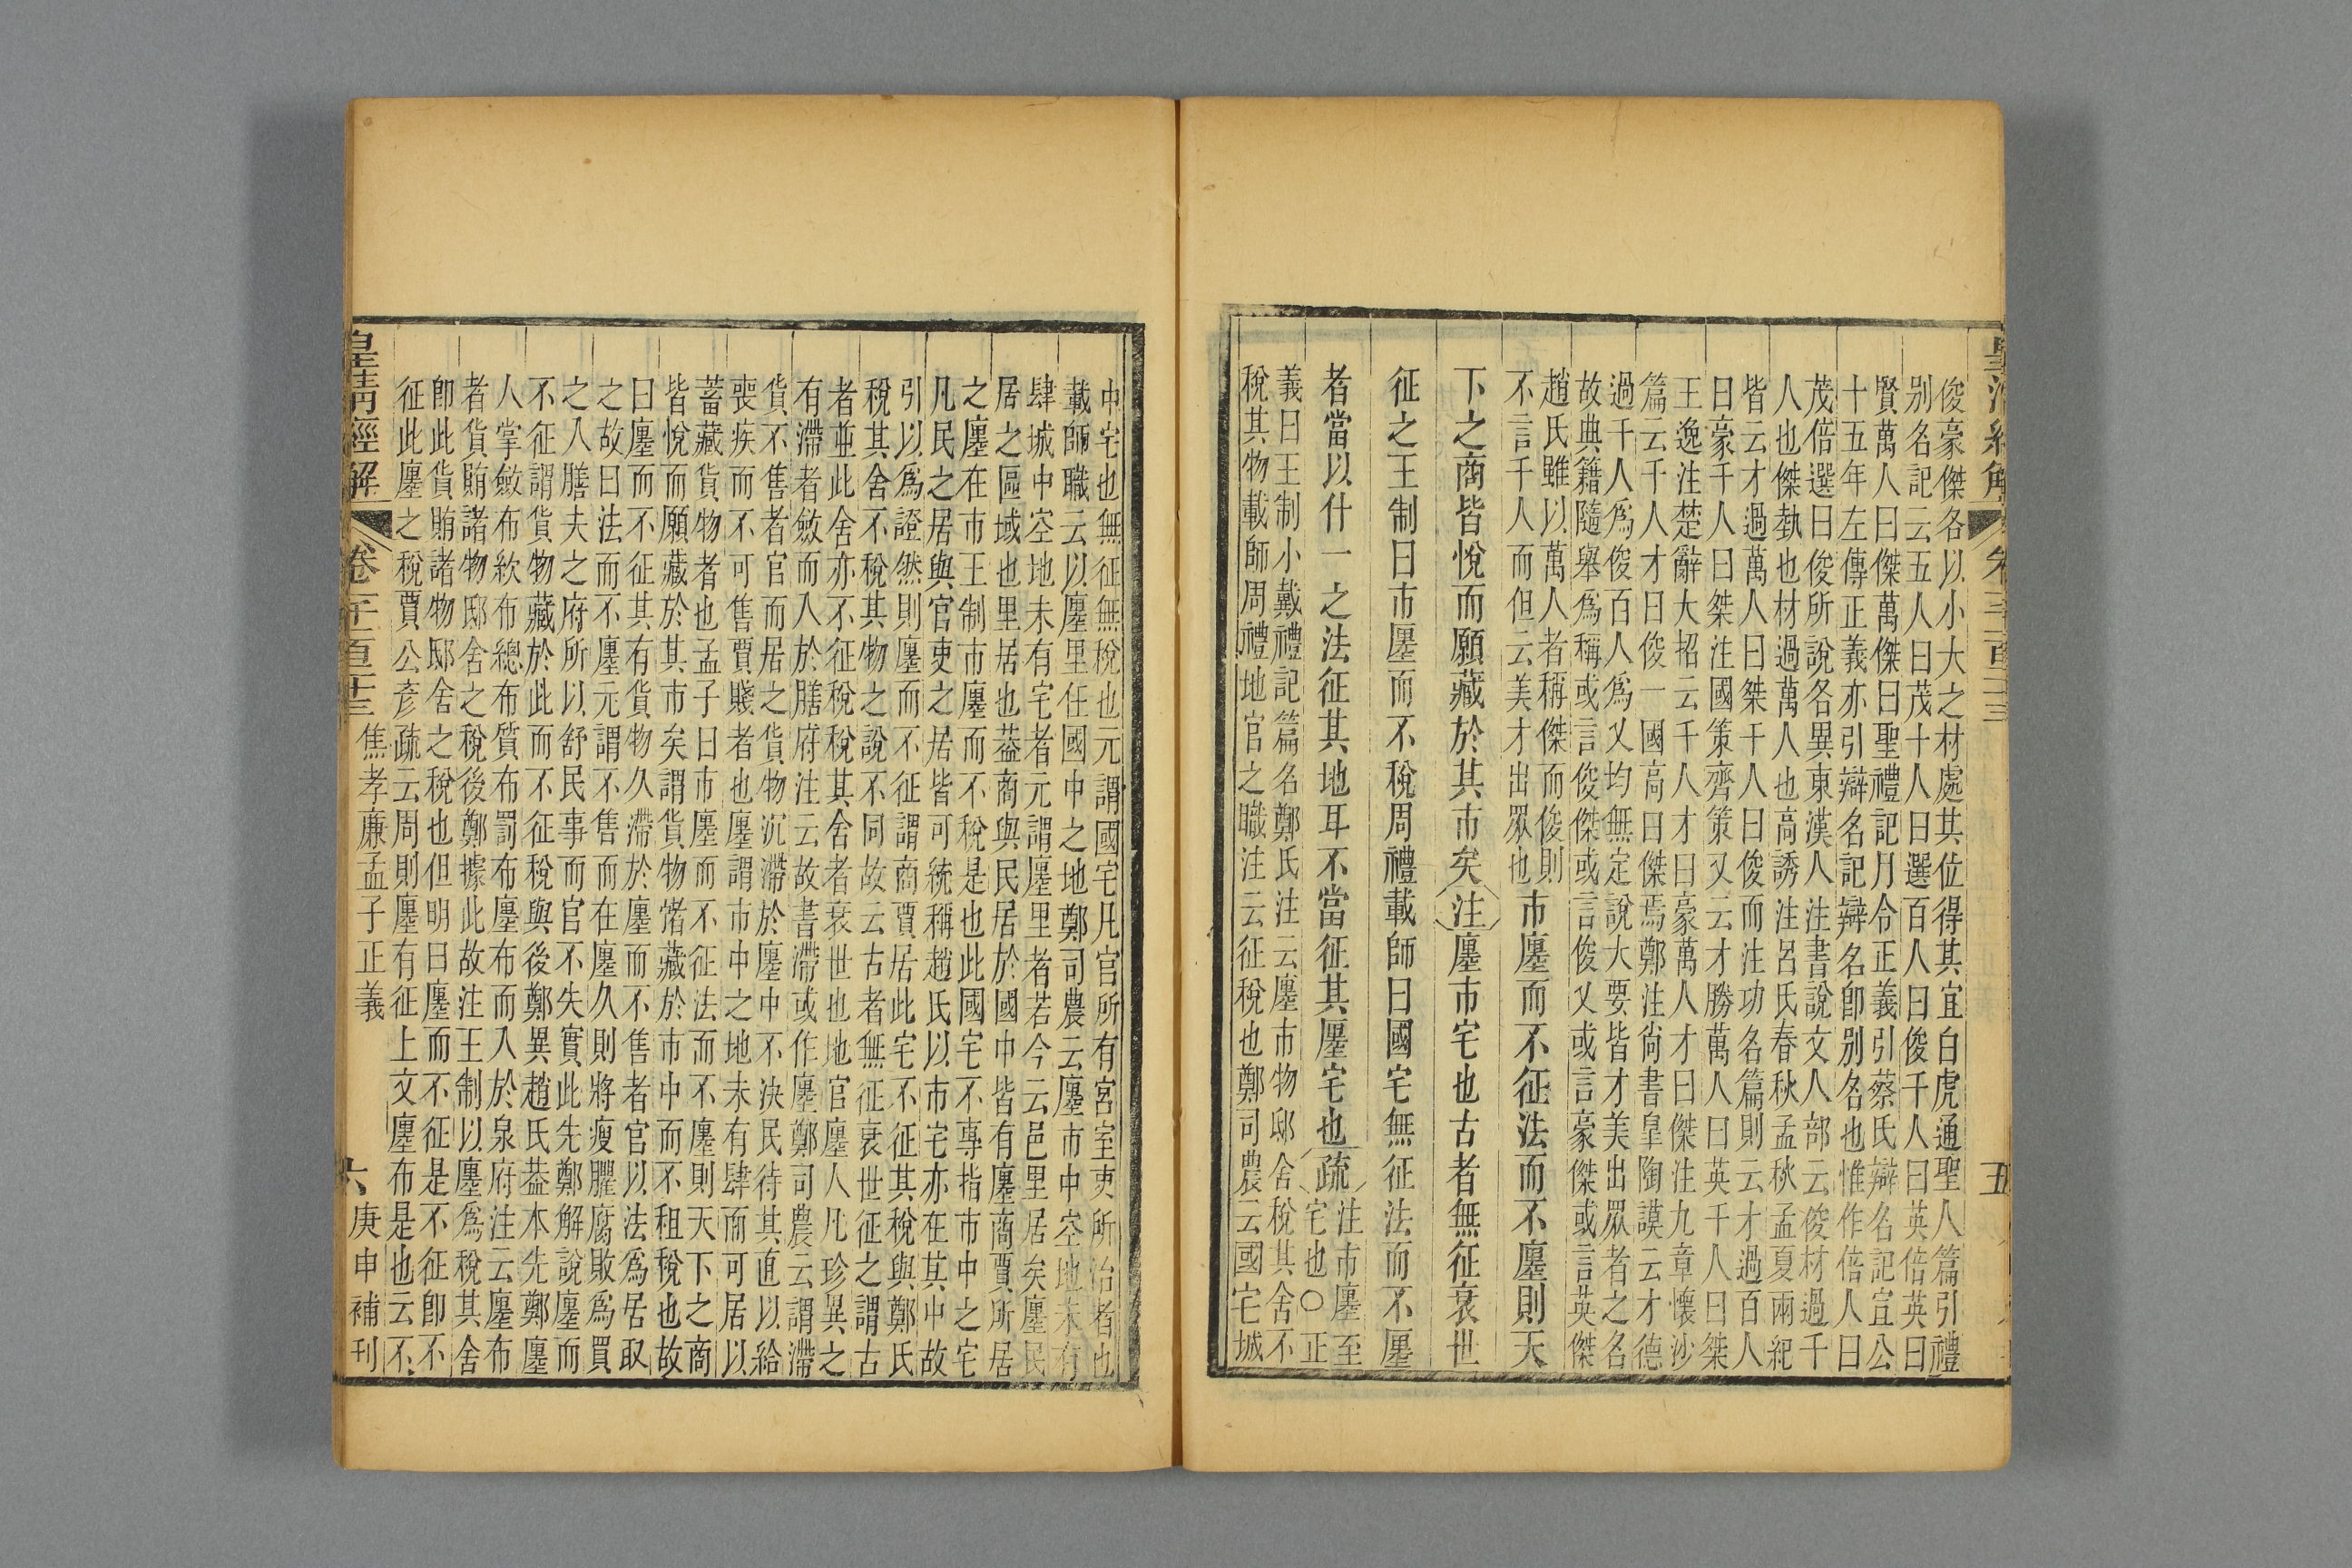 皇清經解
卷三百二十三
五
俊豪傑各以小大之材處其位得其宜白虎通聖人篇引禮
別名記云五人曰茂十人曰選百人曰俊千人曰英倍英曰
賢萬人曰傑萬傑曰聖禮記月令正義引蔡氏辯名記宣公
十五年左傳正義亦引辯名記辯名卽別名也惟作倍人曰
茂倍選曰俊所說各異東漢人注書說文人部云俊材過千
人也傑埶也材過萬人也高誘注呂氏春秋孟秋孟夏兩紀
皆云才過萬人曰桀千人曰俊而注功名篇則云才過百人
曰豪千人曰桀注國策齊策又云才勝萬人曰英千人曰桀
王逸注楚辭大招云千人才曰豪萬人才曰傑注九章懷沙
篇云千人才曰俊一國高曰傑焉鄭注尙書皐陶謨云才德
過千人爲俊百人爲乂均無定說大要皆才美出眾者之名
故典籍隨舉爲稱或言俊傑或言俊乂或言豪傑或言英傑
趙氏雖以萬人者稱傑而俊則
不言千人而但云美才出眾也
市廛而不征法而不廛則天
下之商皆悅而願藏於其市矣注廛市宅也古者無征衰世
征之王制曰市廛而不稅周禮載師曰國宅無征法而不廛
者當以什一之法征其地耳不當征其廛宅也疏
注市廛至
宅也○正
義曰王制小戴禮記篇名鄭氏注云廛市物邸舍稅其舍不
稅其物載師周禮地官之職注云征稅也鄭司農云國宅城
中宅也無征無稅也元謂國宅凡官所有宮室吏所治者也
載師職云以廛里任國中之地鄭司農云廛市中空地未有
肆城中空地未有宅者元謂廛里者若今云邑里居矣廛民
居之區域也里居也葢商與民居於國中皆有廛商賈所居
之廛在市王制市廛而不稅是也此國宅不專指市中之宅
凡民之居與官吏之居皆可統稱趙氏以市宅亦在其中故
引以爲證然則廛而不征謂商賈居此宅不征其稅與鄭氏
稅其舍不稅其物之說不同故云古者無征衰世征之謂古
者並此舍亦不征稅稅其舍者衰世也地官廛人凡珍異之
有滯者斂而入於膳府注云故書滯或作廛鄭司農云謂滯
貨不售者官而居之貨物沉滯於廛中不決民待其直以給
喪疾而不可售賈賤者也廛謂市中之地未有肆而可居以
蓄藏貨物者也孟子曰市廛而不征法而不廛則天下之商
皆悅而願藏於其市矣謂貨物䐗藏於市中而不租稅也故
曰廛而不征其有貨物久滯於廛而不售者官以法爲居取
之故曰法而不廛元謂不售而在廛久則將瘦臞腐敗爲買
之入膳夫之府所以紓民事而官不失實此先鄭解說廛而
不征謂貨物藏於此而不征稅與後鄭異趙氏葢本先鄭廛
人掌斂布絘布總布質布罰布廛布而入於泉府注云廛布
者貨賄諸物邸舍之稅後鄭據此故注王制以廛爲稅其舍
卽此貨賄諸物邸舍之稅也但明曰廛而不征是不征卽不
征此廛之稅賈公彥疏云周則廛有征上文廛布是也云不
皇淸經解
卷一千一百二十三
焦孝廉孟子正義
六
庚申補刊